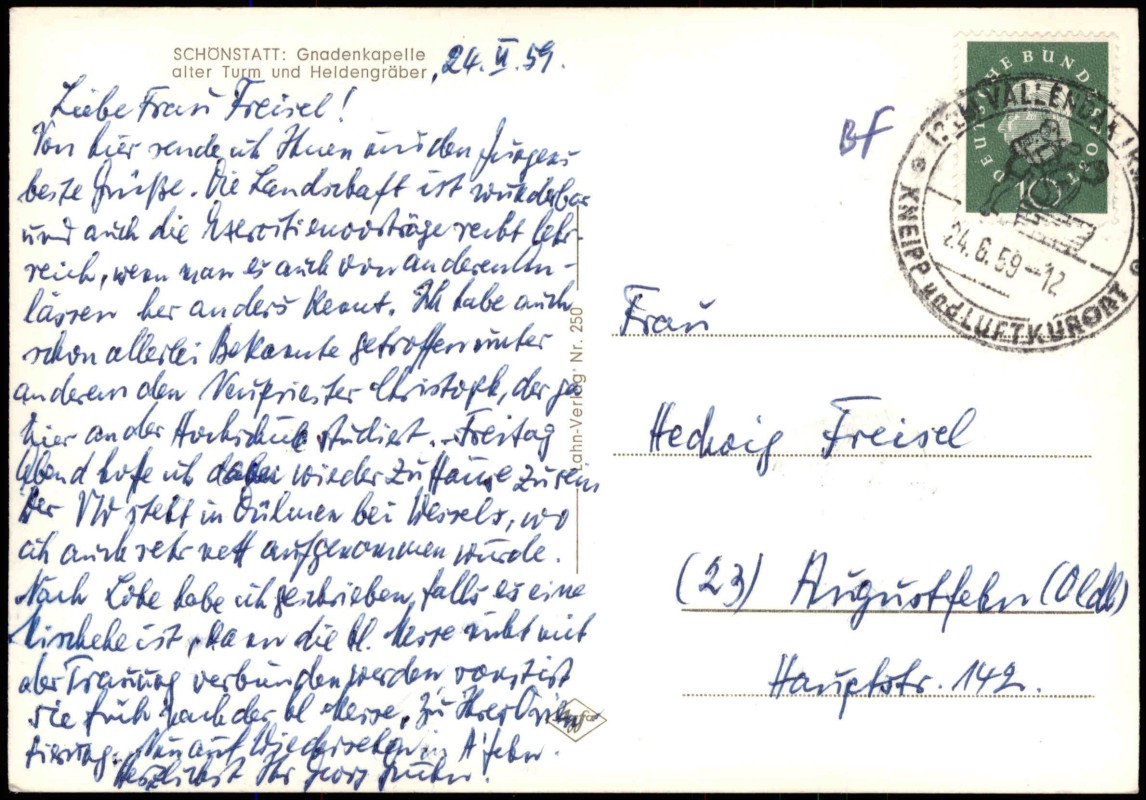 SCHÖNSTATT: Gnadenkapelle
alter Turm und Heldengräber
, 24. VI. 59.
Liebe Frau Freisel!
Von hier sende ich Ihnen und den Jungens
beste Grüße. Die Landschaft ist wunderbar
und auch die Exerzitienvorträge recht lehr-
reich, wenn man es auch von anderen An-
lässen her anders kennt. Ich habe auch
schon allerlei Bekannte getroffen unter
anderem den Neupriester Christoph, der ja
hier an der Hochschule studiert. Freitag
Abend hoffe ich wieder zu Hause zu sein
Der VW steht in Dülmen bei Wessels, wo
ich auch sehr nett aufgenommen wurde.
Nach habe ich geschrieben, falls es eine
Mischehe ist, kann die hl. Messe nicht mit
der Trauung verbunden werden sonst ist
sie früh nach der hl Messe. Zu Ihrer Orien
tierung. Nun auf Wiedersehen in A'fehn.
Herzlichst Ihr Georg
Lahn-Verlag Nr. 250
BF
DEUTSCHE BUNDESPOST
10
(22b) VALLENDAR (RHEIN)
24.6.59-12
KNEIPP und LUFTKURORT
Frau
Hedwig Freisel
(23) Augustfehn (Oldb)
Hauptstr. 142.